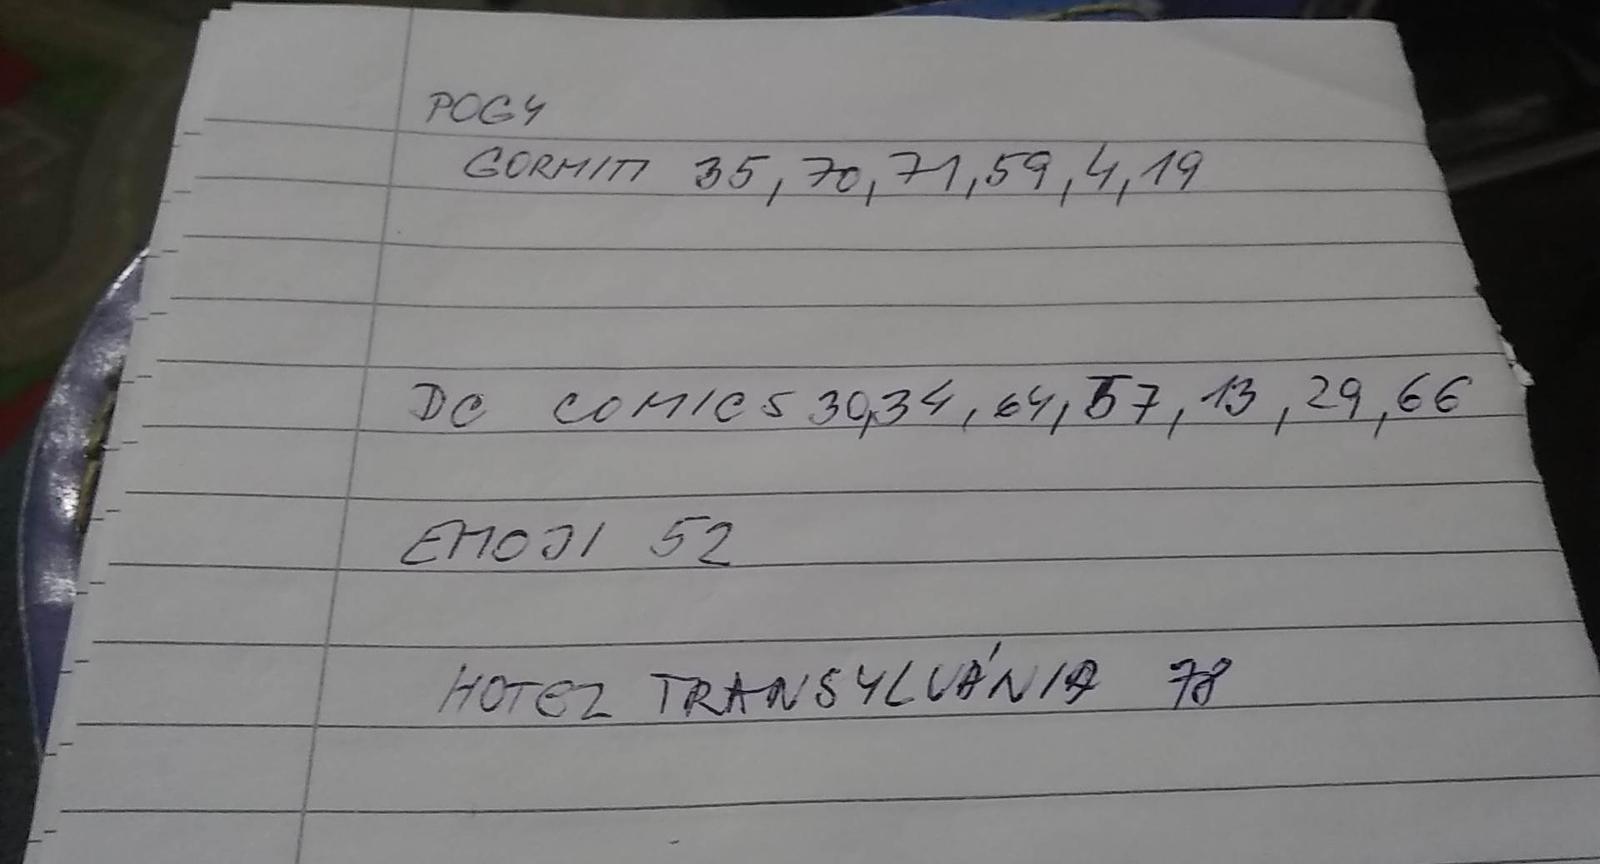 POGY
GORMITI 35, 70, 71, 59, 4, 19
DC COMICS 30,34, 64, 57, 13, 29, 66
EMOJI 52
HOTEL TRANSYLVÁNIA 78